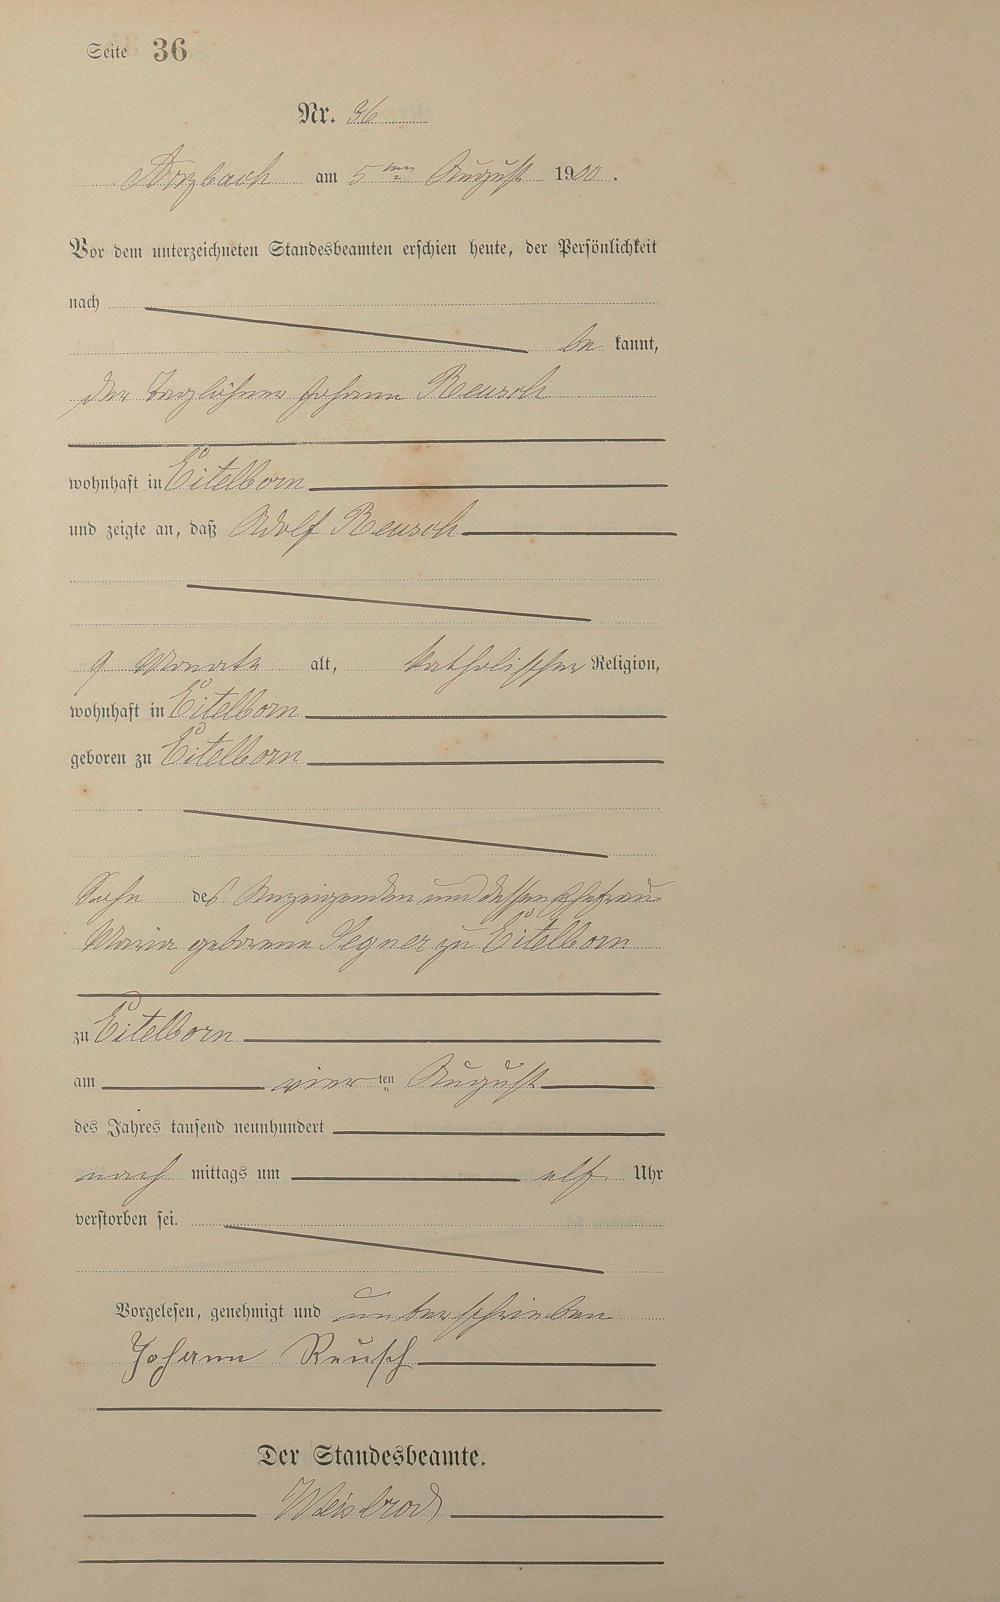 Seite 36
Nr. 36
Arzbach am 5ten August 1900.
Vor dem unterzeichneten Standesbeamten erschien heute, der Persönlichkeit
nach
be kannt,
der Taglöhner Johann Reusch
wohnhaft in Eitelborn
und zeigte an, daß Adolf Reusch
9 Monate alt, katholischer Religion,
wohnhaft in Eitelborn
geboren zu Eitelborn
Sohn des Anzeigenden und dessen Ehefrau
Maria geborene Segner zu Eitelborn
zu Eitelborn
am vier ten August
des Jahres tausend neunhundert
nach mittags um elf Uhr
verstorben sei.
Vorgelesen, genehmigt und unterschrieben
Johann Reusch
Der Standesbeamte.
Weisbrod